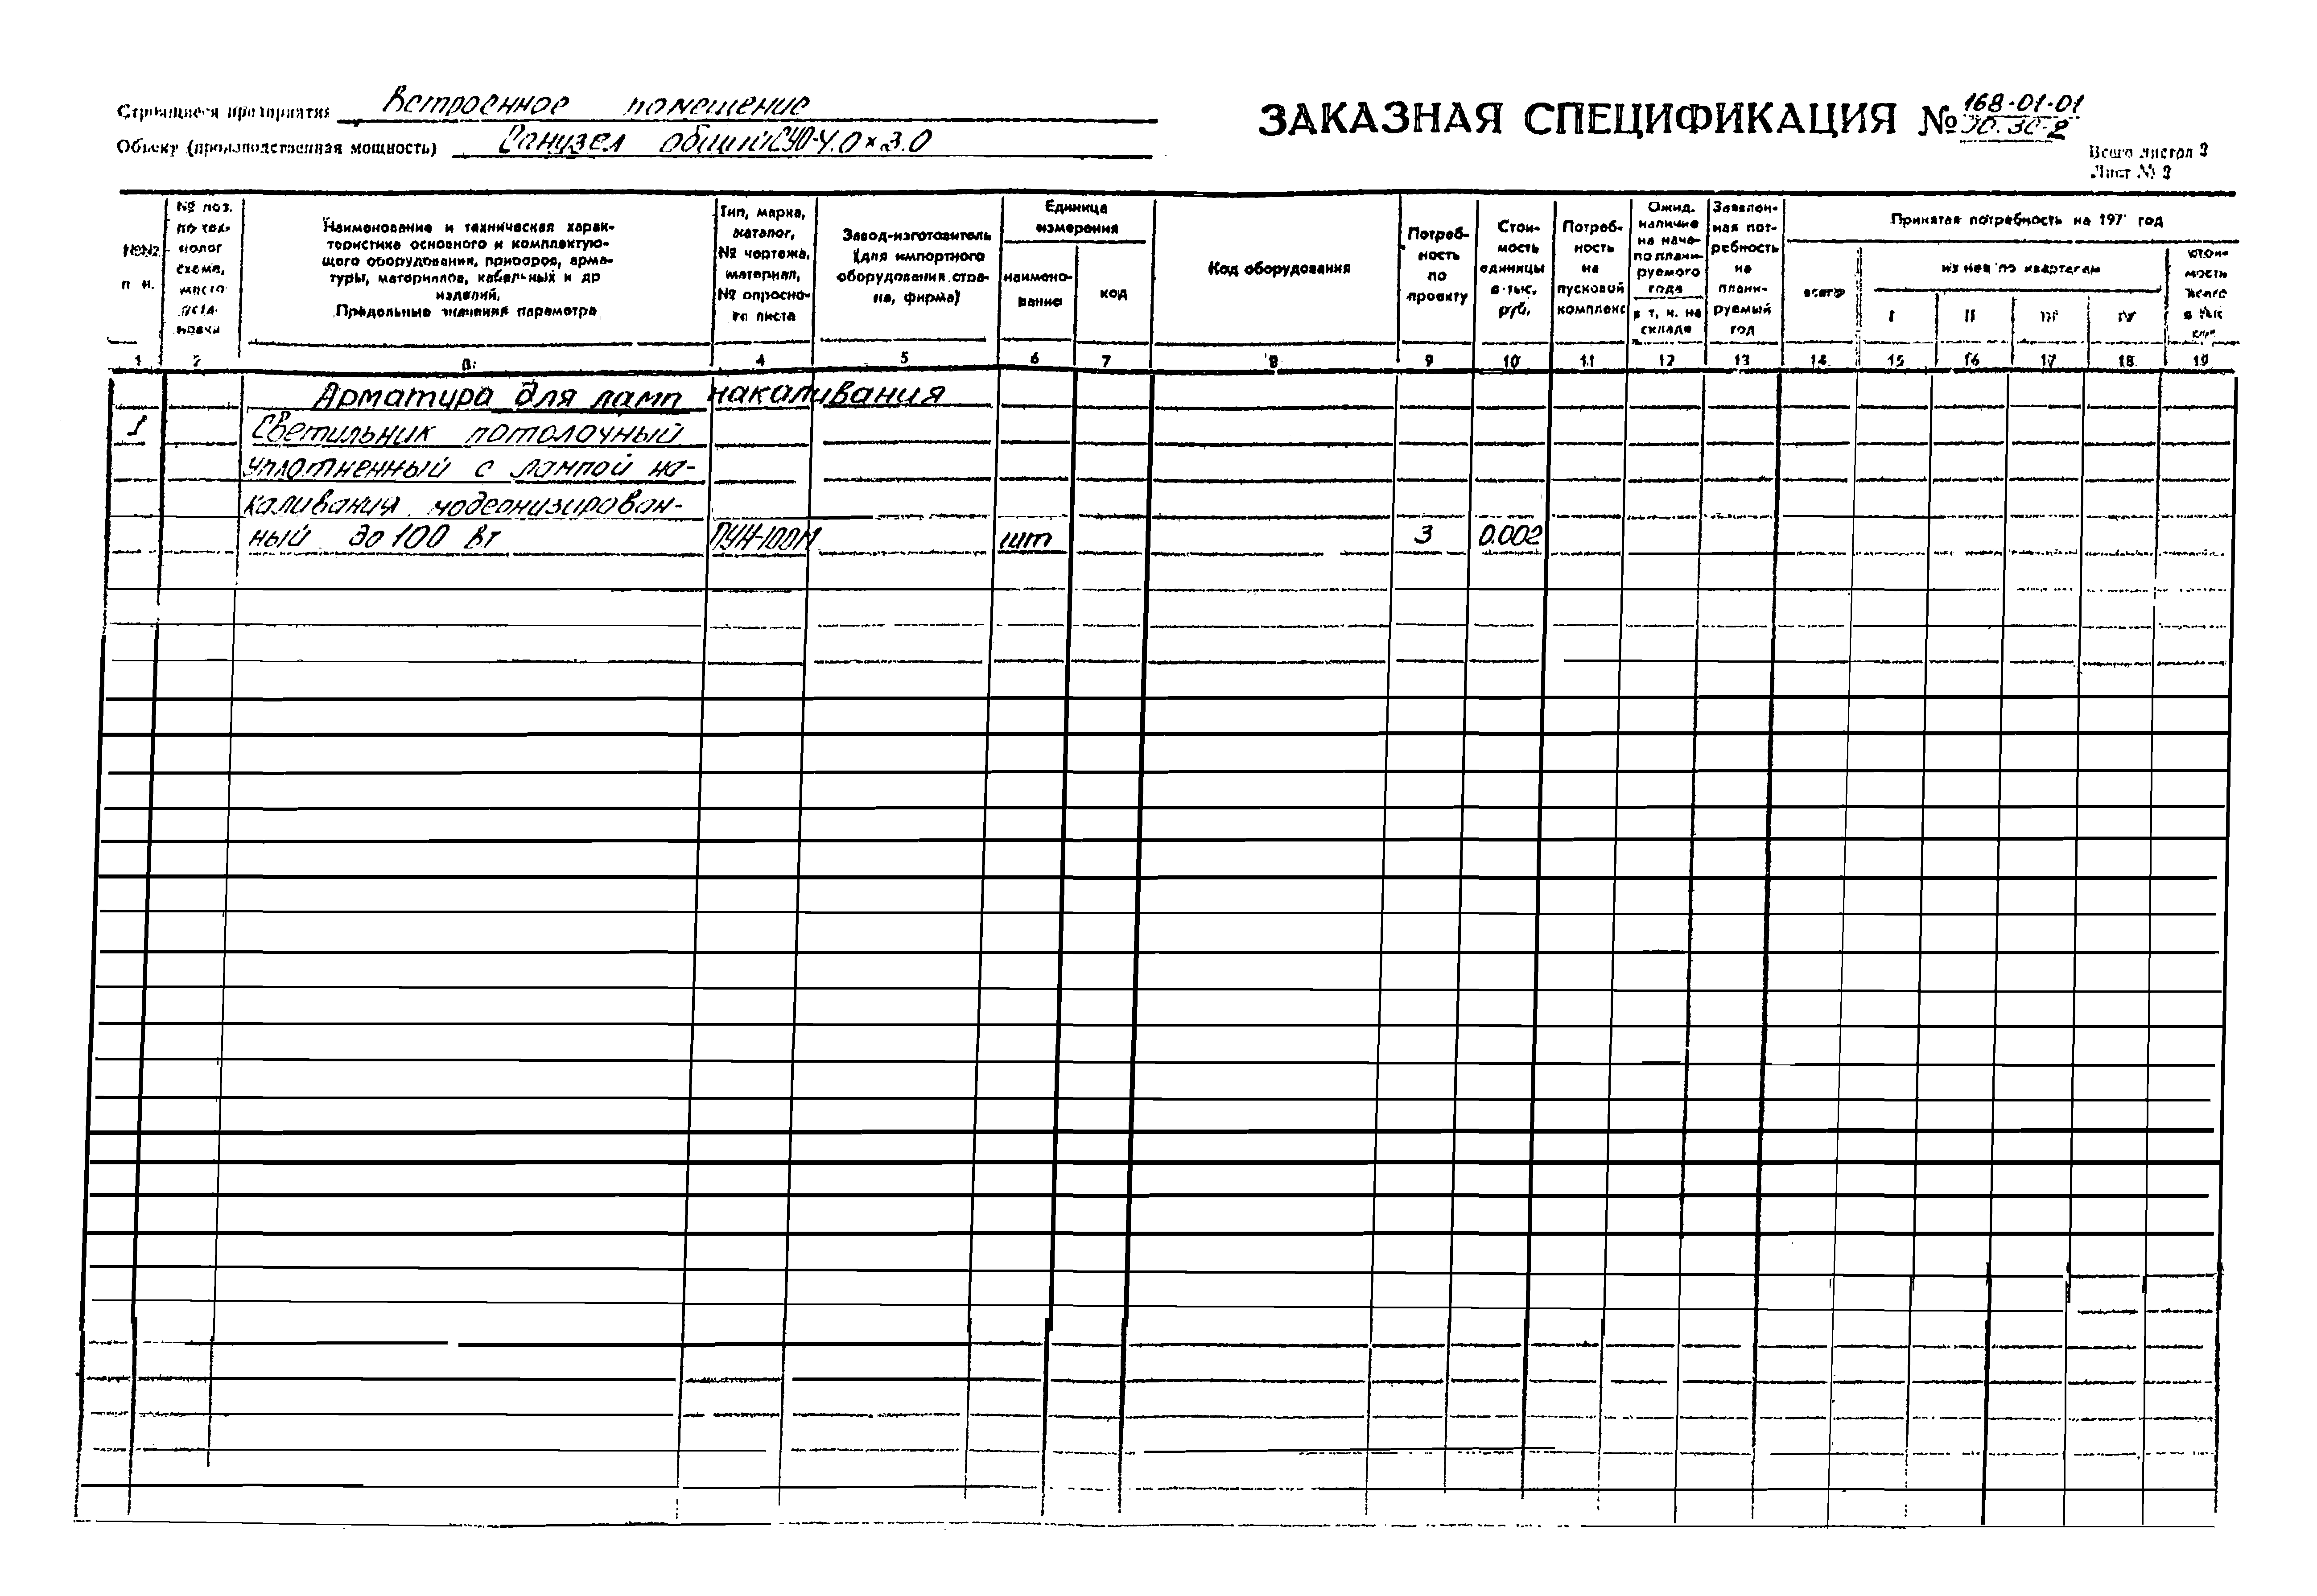 Строящиеся предприятия Встроенное помещение
Объект (производственная мощность) Санузел общий СУО-4.0×3.0
ЗАКАЗНАЯ СПЕЦИФИКАЦИЯ № 168-01-01
Всего листов 3
Лист № 3
№№ п. п.
№ поз. по технолог схеме, место уста-новки
Наименование и техническая харак-
теристика основного и комплектую-
щего оборудования, приборов, арма-
туры, материалов, кабельных и др
изделий.
Предельные значения параметра
Тип, марка,
каталог,
№ чертежа,
материал,
№ опросно-
го листа
Завод-изготовитель
(для импортного
оборудования стра-
на, фирма)
Единица
измерения
наимено-
вание
код
Код оборудования
Потреб-
ность
по
проекту
Стои-
мость
единицы
в тыс.
руб.
Потреб-
ность
на
пусковой
комплекс
Ожид.
наличие
на нача-
ло плани-
руемого
года
в т. ч. на
складе
Заявлен-
ная пот-
ребность
на
плани-
руемый
год
Принятая потребность на 197 год
всего
из нее по кварталам
I II III IV
стои-
мость
всего
в тыс
руб
1 2 3 4 5 6 7 8 9 10 11 12 13 14 15 16 17 18 19
Арматура для ламп накаливания
1 Светильник потолочный
уплотненный с лампой на-
каливания модернизирован-
ный до 100 Вт ПУН-100М шт 3 0.002